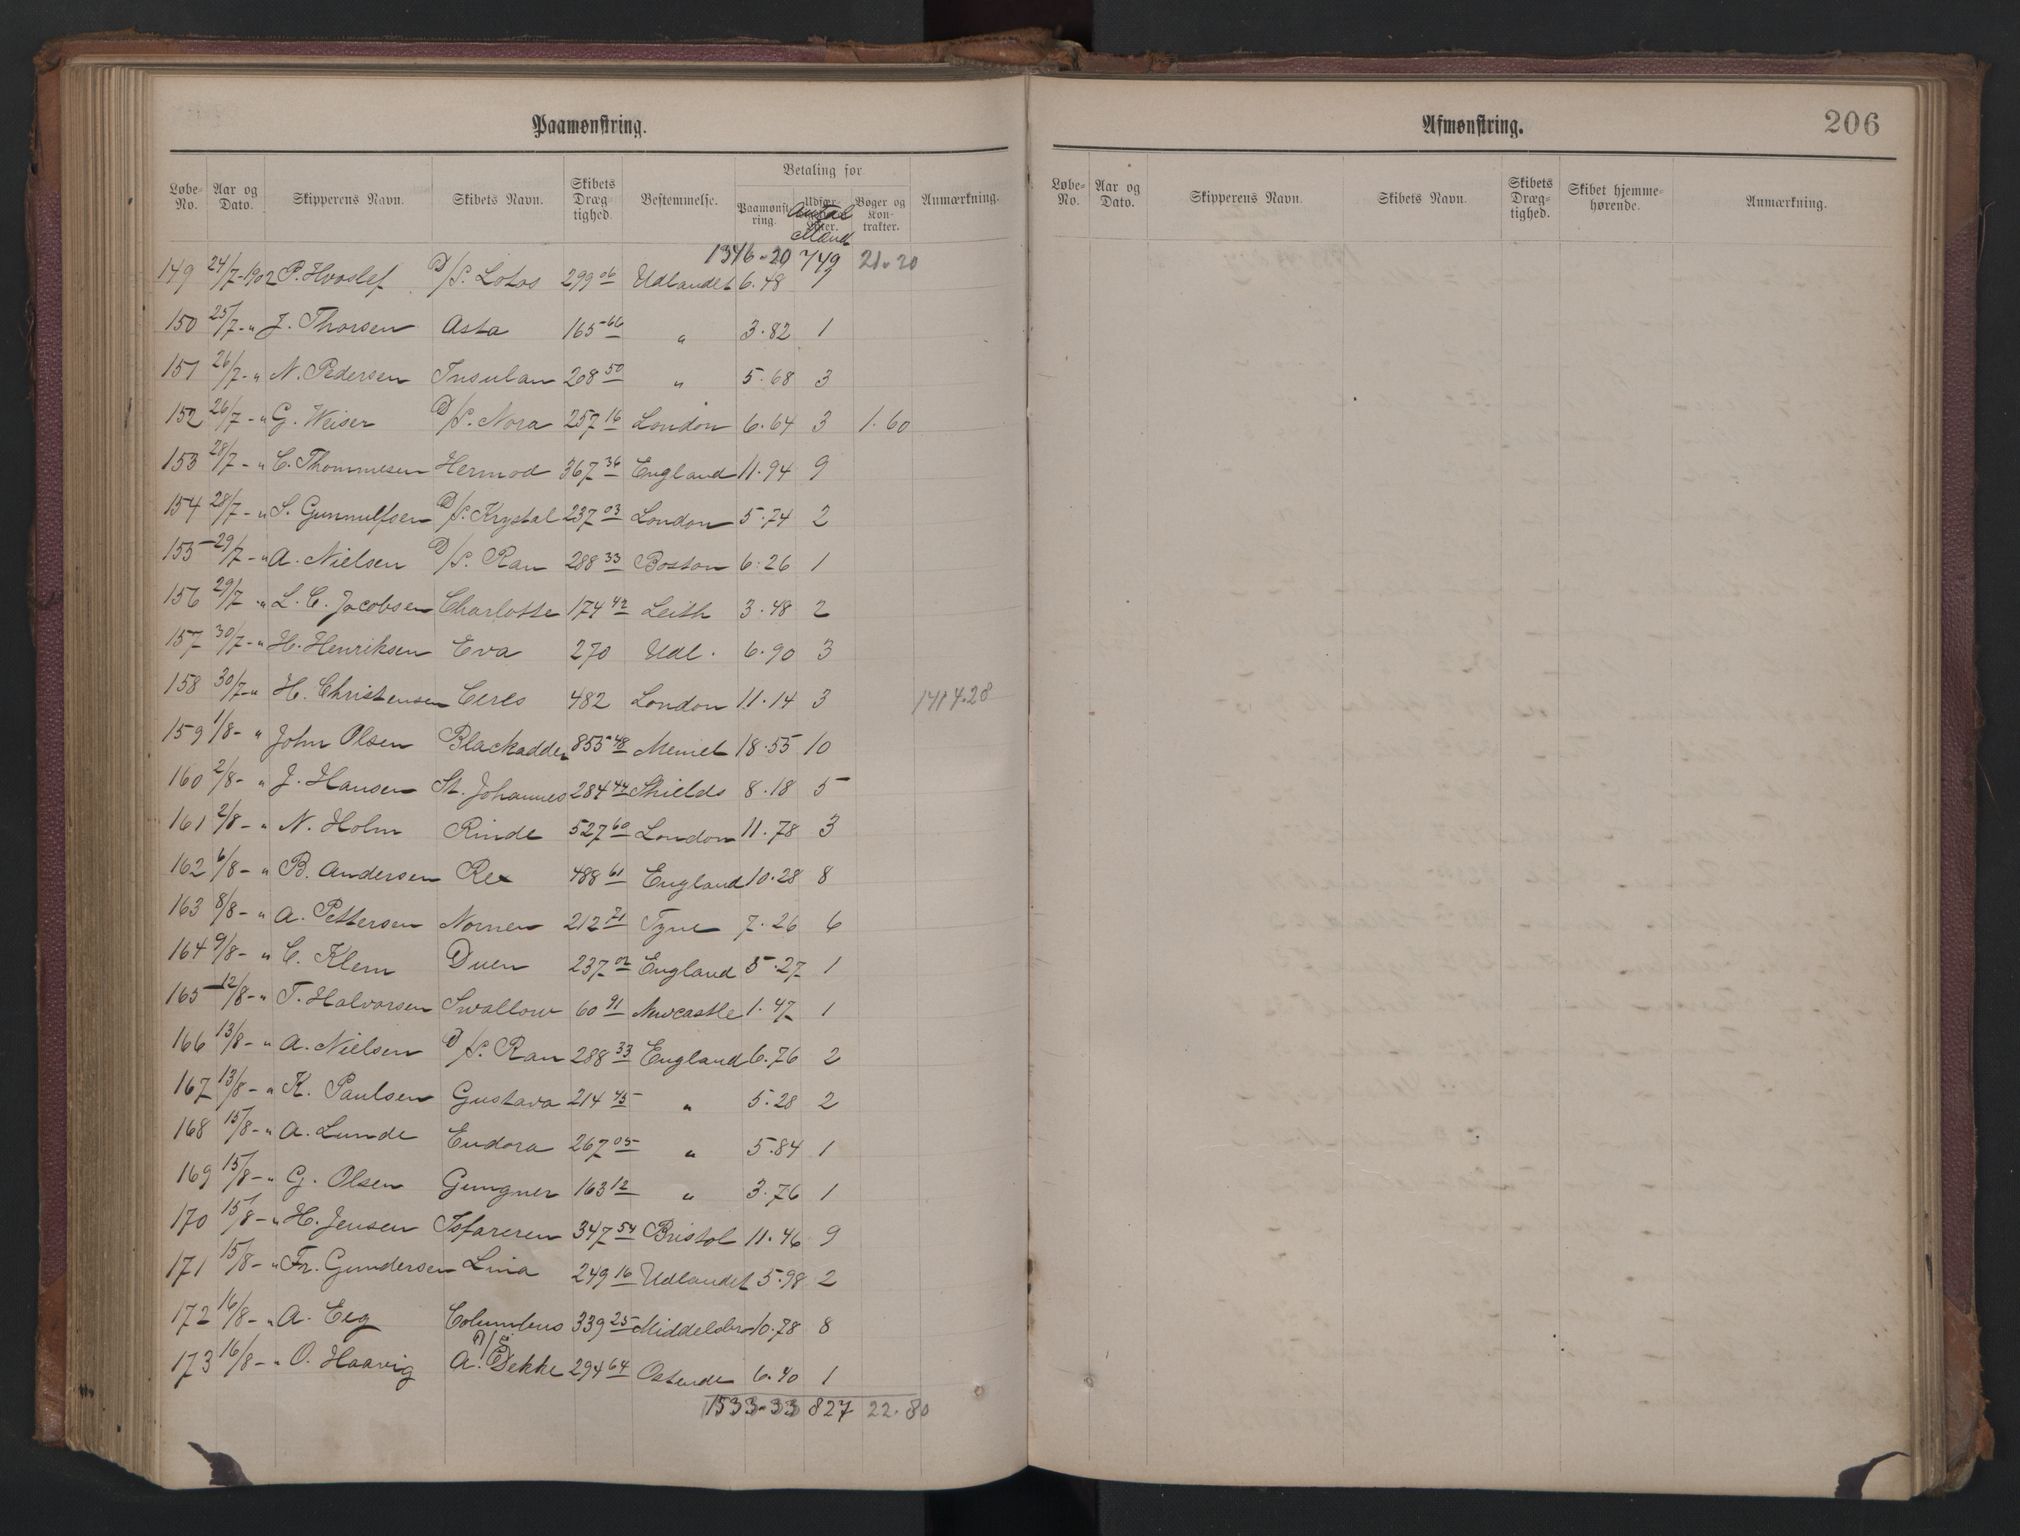 Paamønstring.
Løbe-No. Aar og Dato. Skipperens Navn. Skibets Navn. Skibets Dræg-tighed. Bestemmelse. Betaling for Paamønst-ring. Antal Mand Bøger og Kon-trakter. Anmærkning.
1346.20 749 21.20
149 24/7-1902 P. Hvoslef D/S. Lotos 299 06 Udlandet 6.48
150 25/7 - " J. Thorsen Asta 165 66 " 3.82 1
151 26/7 - " N. Pedersen Insulan 208 50 " 5.68 3
152 26/7 - " G. Weiser D/S. Nora 257 16 London 6.64 3 1.60
153 28/7 - " C. Thommesen Hermod 367 36 England 11.94 9
154 28/7 - " S. Gunnulfsen D/S. Krystal 237 03 London 5.74 2
155 29/7 - " A. Nielsen D/S. Ran 288 33 Boston 6.26 1
156 29/7 - " L. C. Jacobsen Charlotte 174 42 Leith 3.48 2
157 30/7 - " H. Henriksen Eva 270 Udl. 6.90 3
158 30/7 - " H. Christensen Ceres 482 London 11.14 3 1414.28
159 1/8 - " John Olsen Blackadder 855 48 Memel 18.55 10
160 2/8 - " J. Hansen St. Johannes 284 44 Shields 8.18 5
161 2/8 - " N. Holm Rinde 527 60 London 11.78 3
162 6/8 - " B. Andersen Rex 488 61 England 10.28 8
163 8/8 - " A. Pettersen Nornen 212 71 Tyne 7.26 6
164 9/8 - " C. Klem Duen 237 02 England 5.27 1
165 12/8 - " T. Halvorsen Swallow 60 91 Newcastle 1.47 1
166 13/8 - " A. Nielsen D/S. Ran 288 33 England 6.76 2
167 13/8 - " K. Paulsen Gustava 214 45 " 5.28 2
168 15/8 - " A. Lunde Eudora 267 05 " 5.84 1
169 15/8 - " G. Olsen Gungner 163 12 " 3.76 1
170 15/8 - " H. Jensen Isfareren 347 54 Bristol 11.46 9
171 15/8 - " Fr. Gundersen Lina 249 16 Udlandet 5.98 2
172 16/8 - " A. Eeg Columbus 339 25 Middelsbro 10.78 8
173 16/8 - " O. Haavig D/S A. Dekke 294 64 Ostende 6.40 1
1533.33 827 22.80
Afmønstring. 206
Løbe-No. Aar og Dato. Skipperens Navn. Skibets Navn. Skibets Dræg-tighed. Skibet hjemme-hørende. Anmærkning.